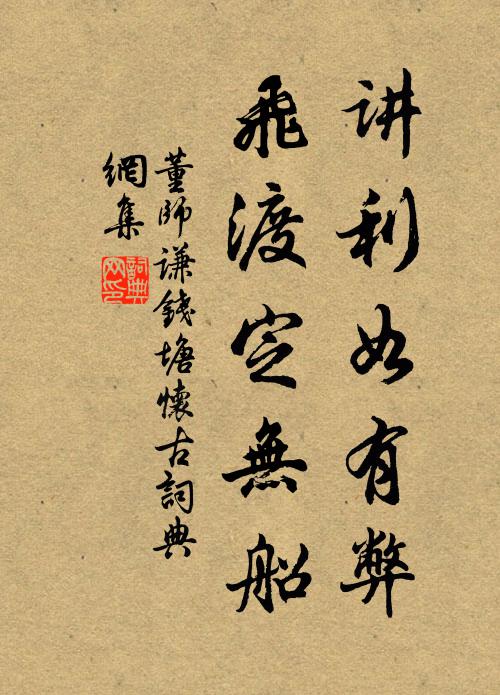 讲利如有弊
飛渡定無船
董師谦錢塘懷古詞典
網集
詞典
网印